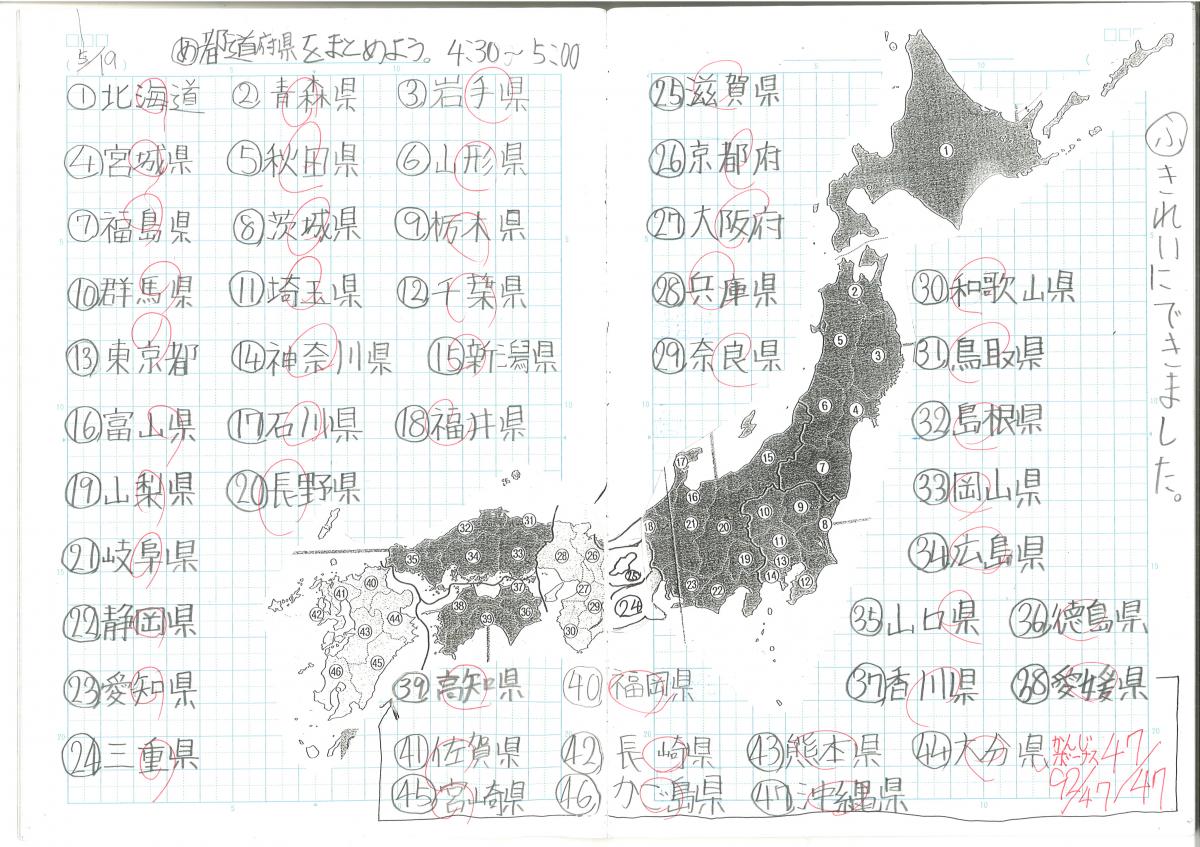 5/19
め都道府県をまとめよう。 4:30〜5:00
①北海道 ②青森県 ③岩手県
④宮城県 ⑤秋田県 ⑥山形県
⑦福島県 ⑧茨城県 ⑨栃木県
⑩群馬県 ⑪埼玉県 ⑫千葉県
⑬東京都 ⑭神奈川県 ⑮新潟県
⑯富山県 ⑰石川県 ⑱福井県
⑲山梨県 ⑳長野県
㉑岐阜県
㉒静岡県
㉓愛知県
㉔三重県
㉕滋賀県
㉖京都府
㉗大阪府
㉘兵庫県
㉙奈良県
㉚和歌山県
㉛鳥取県
㉜島根県
㉝岡山県
㉞広島県
㉟山口県 ㊱徳島県
㊲香川県 ㊳愛媛県
㊴高知県 ㊵福岡県
㊶佐賀県 ㊷長崎県 ㊸熊本県 ㊹大分県
㊺宮崎県 ㊻かご島県 ㊼沖縄県
ふきれいにできました。
かんじ
ボーナス 47/47
92/47
①
②
⑤
③
⑥
④
⑮
⑦
⑰
⑯
⑩
⑨
⑱
㉑
⑳
⑧
⑪
⑲
⑬
⑭
⑫
㉓
㉒
㉕
㉔
㉜
㉛
㉟
㉞
㉝
㉘
㉖
㉗
㉙
㉚
㊲
㊳
㊱
㊴
㊵
㊶
㊷
㊹
㊸
㊺
㊻